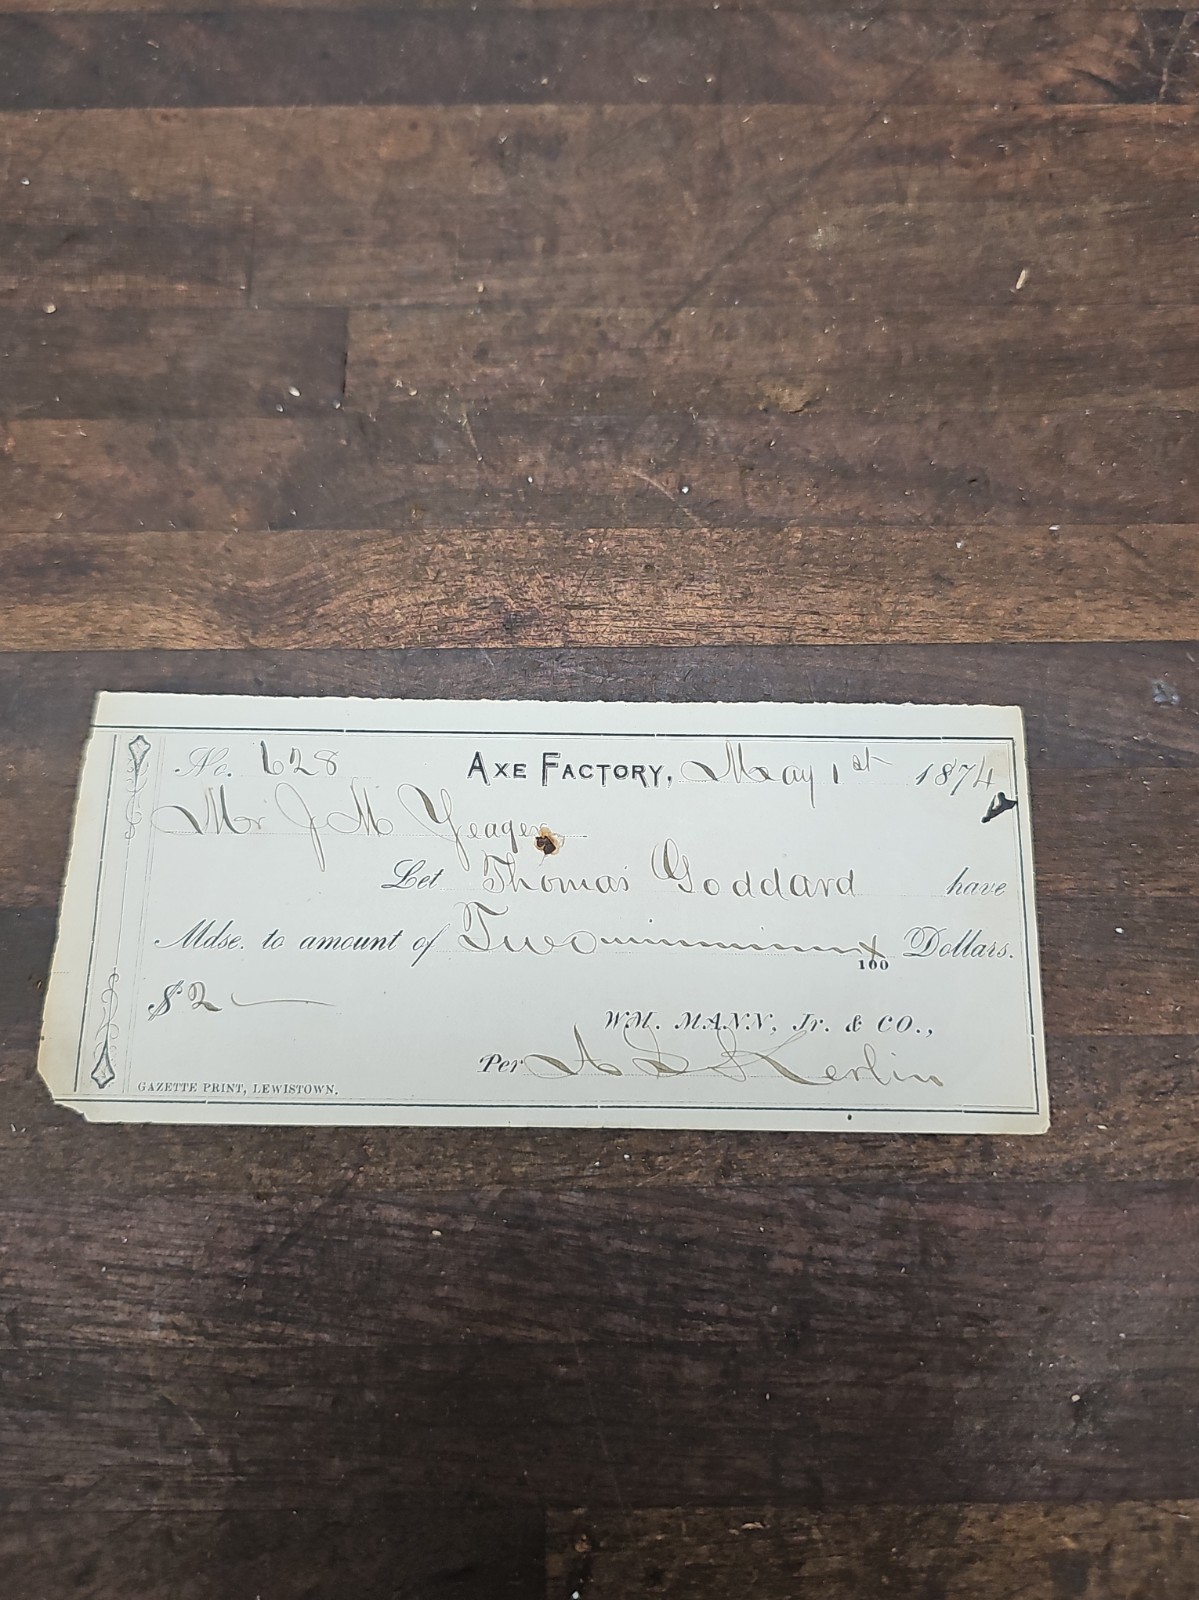 No. 628 AXE FACTORY, May 1st 1874
Mr J M Yeager
Let Thomas Goddard have
Mdse. to amount of Two x/100 Dollars.
$2
WM. MANN, Jr. & CO.,
Per A S Kerlin
GAZETTE PRINT, LEWISTOWN.